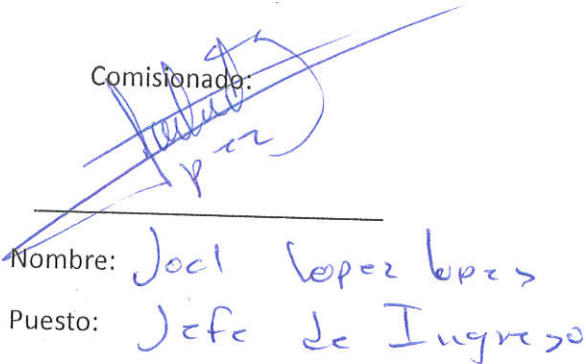 Comisionado:
Nombre: Joel Lopez Lopez
Puesto: Jefe de Ingreso